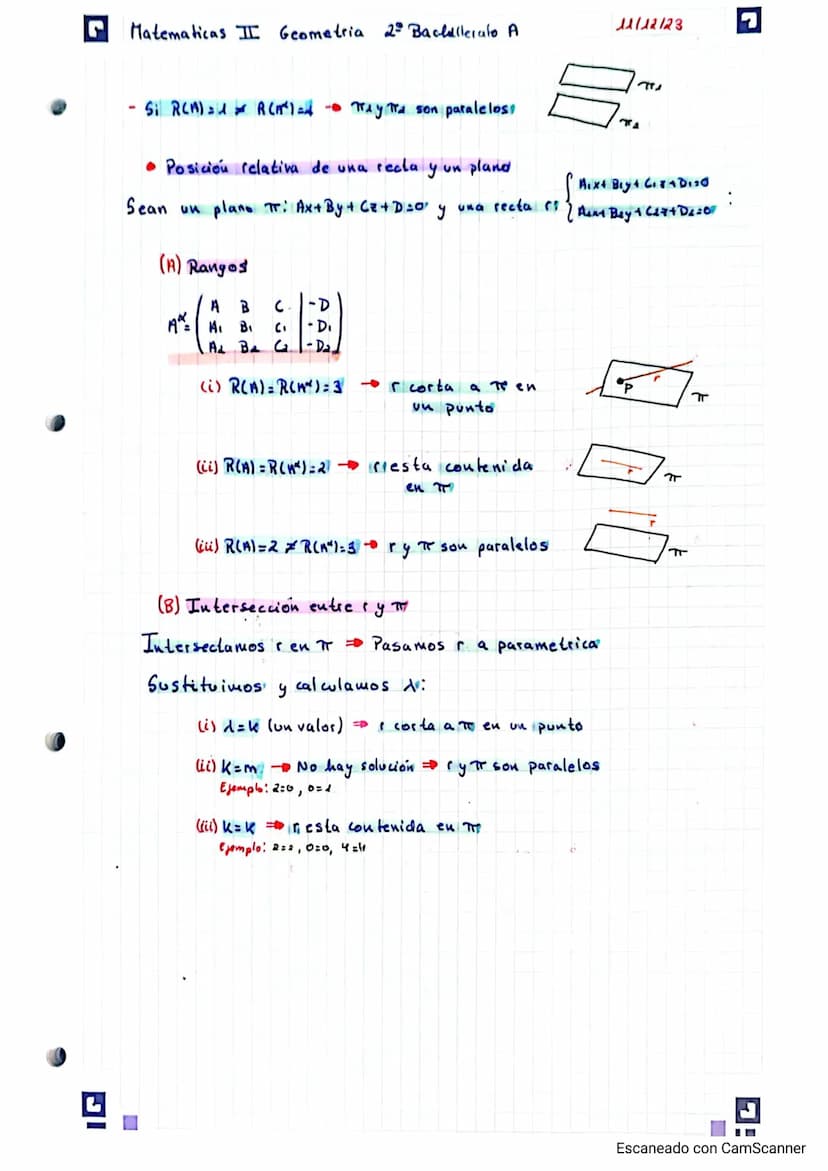 Matematicas II Geometria 2º Bachillerato A 11/12/23
- Si R(A)=1 ≠ R(A*)=2 → π1 y π2 son paralelos
π1
π2
• Posición relativa de una recta y un plano
Sean un plano π: Ax+By+Cz+D=0 y una recta r: { A1x+B1y+C1z+D1=0
A2x+B2y+C2z+D2=0 :
(A) Rangos
A B C | -D
A*= A1 B1 C1 | -D1
A2 B2 C2 | -D2
(i) R(A)=R(A*)=3 → r corta a π en
un punto
P r π
(ii) R(A)=R(A*)=2 → r esta contenida
en π
r π
(iii) R(A)=2 ≠ R(A*)=3 → r y π son paralelos
r π
(B) Intersección entre r y π
Intersectamos r en π ⇒ Pasamos r a parametrica
Sustituimos y calculamos λ:
(i) λ=k (un valor) ⇒ r corta a π en un punto
(ii) K=m → No hay solución ⇒ r y π son paralelos
Ejemplo: 2=0, 0=1
(iii) K=K ⇒ r esta contenida en π
Ejemplo: 2=2, 0=0, 4=4
Escaneado con CamScanner